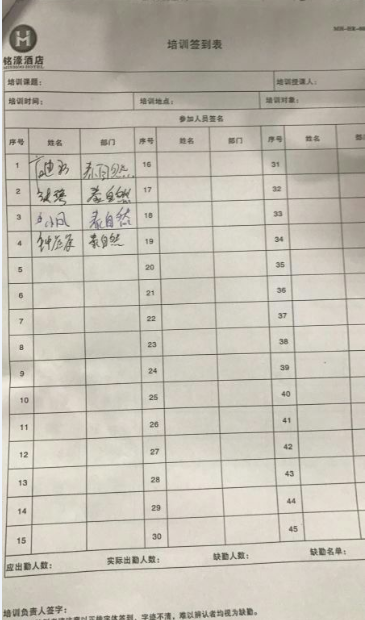 铭濠酒店
培训签到表
培训课题： 培训授课人：
培训时间： 培训地点： 培训对象：
参加人员签名
序号 姓名 部门 序号 姓名 部门 序号 姓名
1 16 31
2 泰自然 17 32
3 泰自然 18 33
4 泰自然 19 34
5 20 35
6 21 36
7 22 37
8 23 38
9 24 39
10 25 40
11 26 41
12 27 42
13 28 43
14 29 44
15 30 45
应出勤人数： 实际出勤人数： 缺勤人数： 缺勤名单：
培训负责人签字：
字迹不清，难以辨认者均视为缺勤。